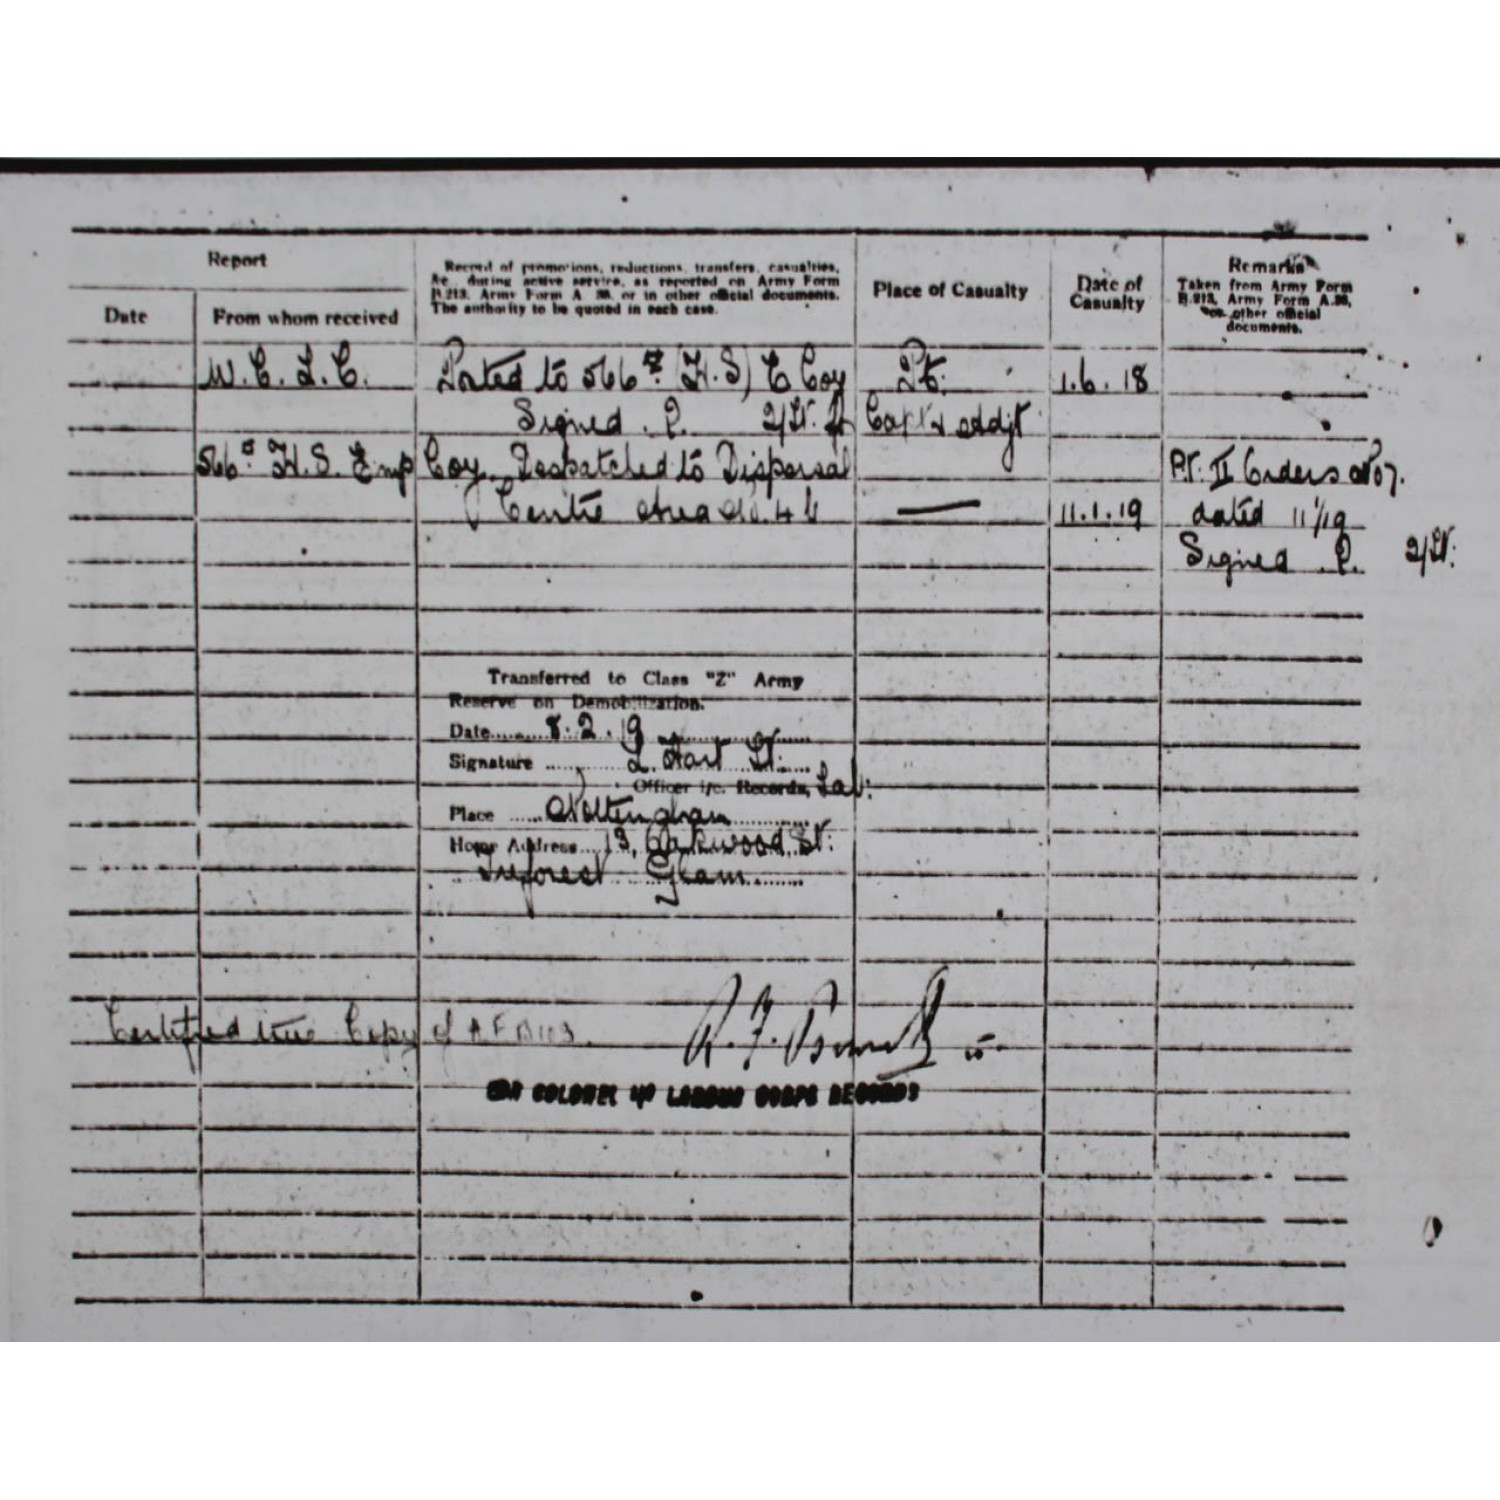 Report
Record of promotions, reductions, transfers, casualties,
&c. during active service, as reported on Army Form
B.213, Army Form A. 36, or in other official documents.
The authority to be quoted in each case.
Place of Casualty
Date of
Casualty
Remarks
Taken from Army Form
B.213, Army Form A.36,
or other official
documents.
Date
From whom received
W. C. L. C. Posted to 566th (H.S) E Coy Pte. 1.6.18
Signed . P. 2/Lt. Capt & Adjt
566th H.S. Emp Coy Despatched to Dispersal Pt. II Orders No 7.
Centre Area No. 4 11.1.19 dated 11/1/19
Signed . P. 2/Lt.
Transferred to Class "Z" Army
Reserve on Demobilization.
Date 8.2.19
Signature L. Hart Lt.
Officer i/c. Records, Lab:
Place Nottingham
Home Address 13, Oakwood St.
Treforest Glam
Certified true Copy of A F B103.
R. F.
FOR COLONEL I/C LABOUR CORPS RECORDS